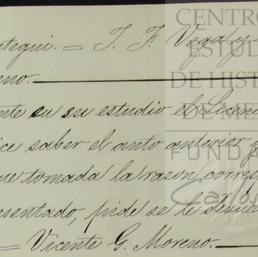 ategui. = J. F. Vega y
eno.
nte en su estudio el licen
ice saber el auto anterior y
ue tomada la razon corres
esentado, pide se le devue
= Vicente G. Moreno.
CENTRO
ESTUD
DE HIST
DE MEX
FUNDA
Carlos